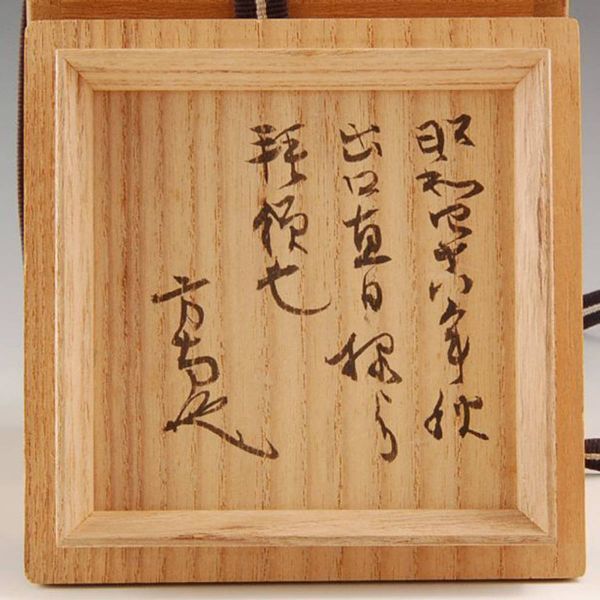 昭和四十八年秋
出口直日様より
拝領也